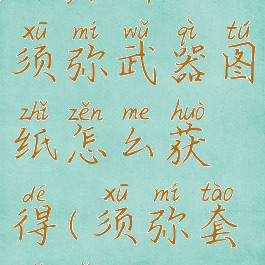 xū mí wǔ qì tú
须弥武器图
zhǐ zěn me huò
纸怎么获
dé xū mí tào
得(须弥套